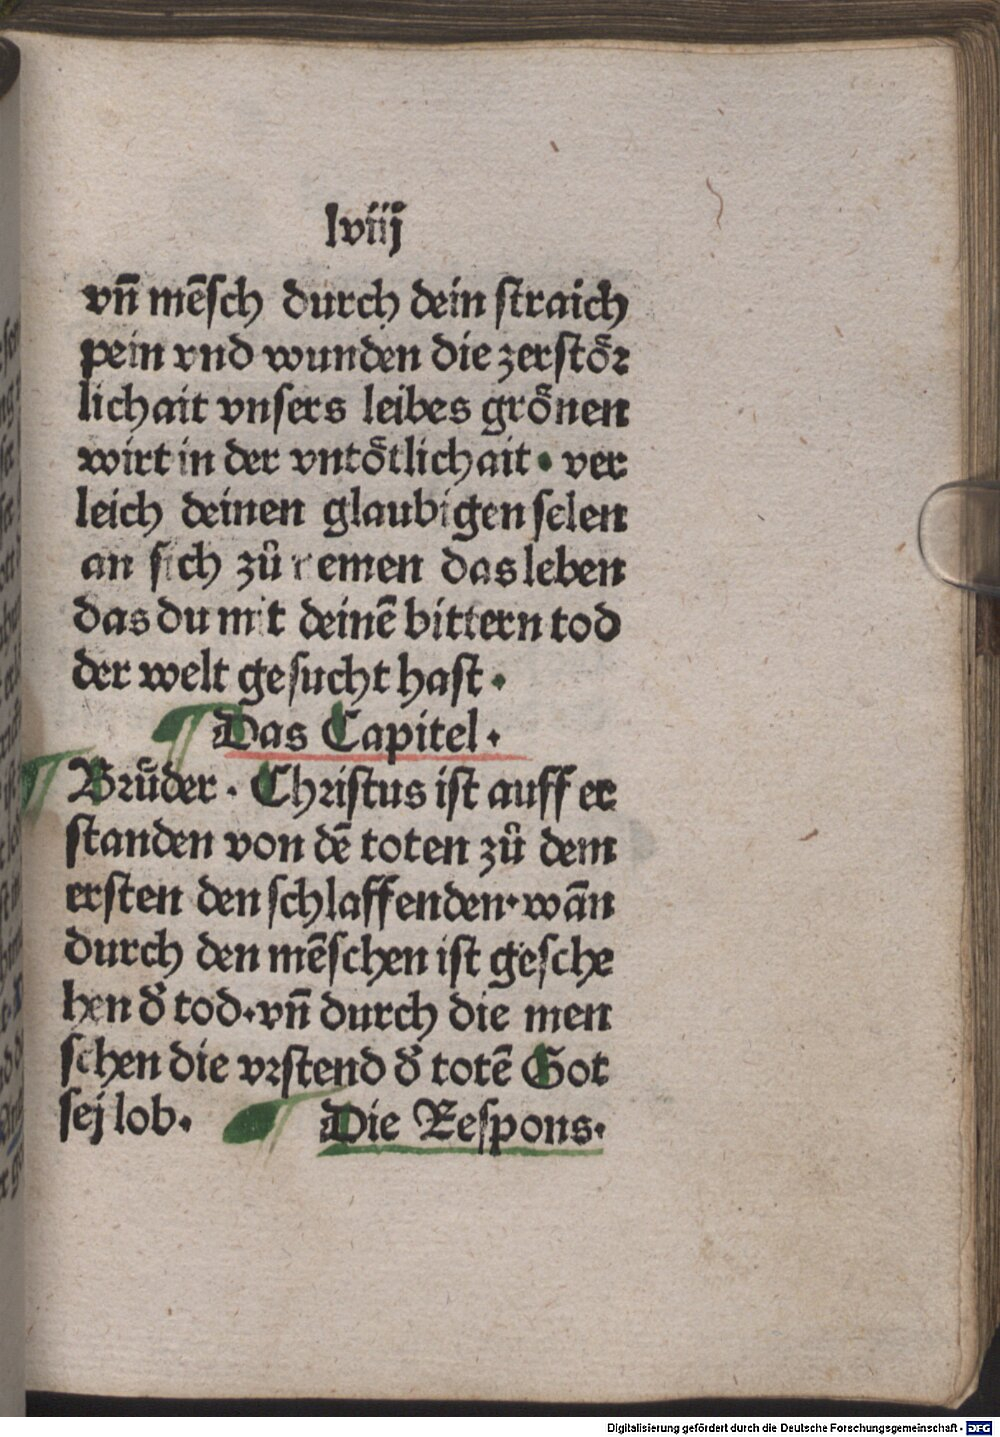 lviij
vñ mēsch durch dein straich
pein vnd wunden die zerstoͤr
lichait vnsers leibes groͤnen
wirt in der vntoͤtlichait · ver
leich deinen glaubigen selen
an sich zů nemen das leben
das du mit deinē bittern tod
der welt gesucht hast ·
Das Capitel ·
Bruͤder · Christus ist auff er
standen von dē toten zů dem
ersten den schlaffenden · wān
durch den mēschen ist gesche
hen d̄ tod · vñ durch die men
schen die vrstend d̄ totē Got
sej lob · Die Respons ·
Digitalisierung gefördert durch die Deutsche Forschungsgemeinschaft - DFG